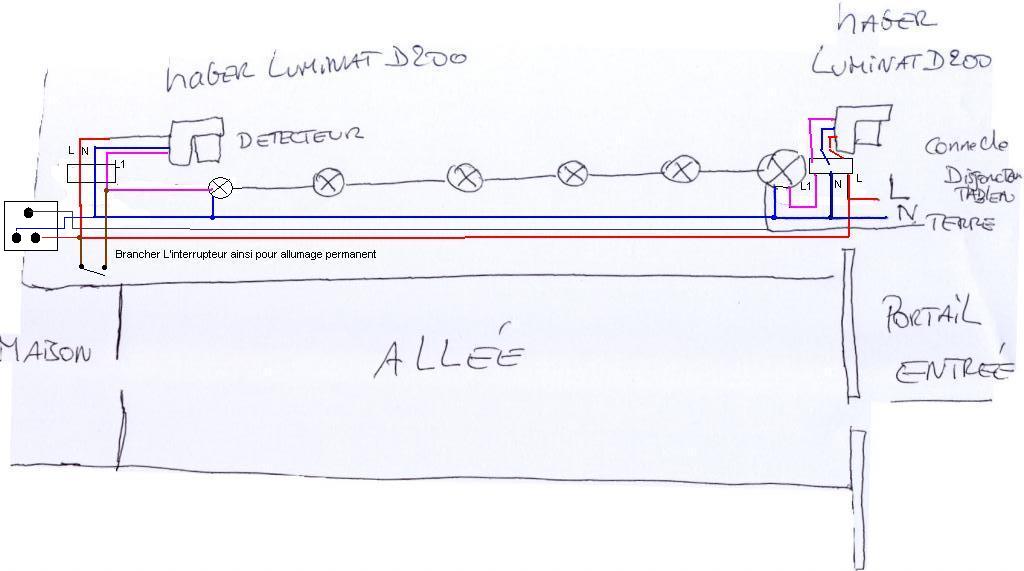 HAGER
LUMINAT D200
HAGER LUMINAT D200
DETECTEUR
L N
L1
L1
N
L
CONNECTE
DISJONCTEUR
TABLEAU
L
N
TERRE
Brancher L'interrupteur ainsi pour allumage permanent
MAISON
ALLEÉ
PORTAIL
ENTREÉ